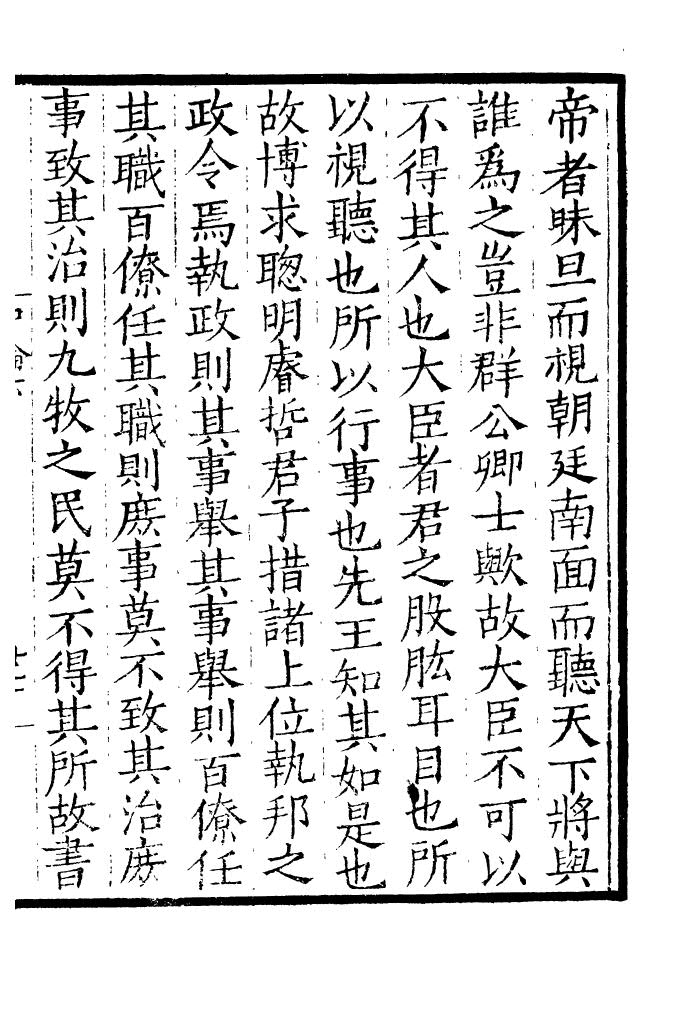 帝者昧旦而視朝廷南面而聽天下將與
誰爲之豈非群公卿士歟故大臣不可以
不得其人也大臣者君之股肱耳目也所
以視聽也所以行事也先王知其如是也
故博求聰明睿哲君子措諸上位執邦之
政令焉執政則其事舉其事舉則百僚任
其職百僚任其職則庶事莫不致其治庶
事致其治則九牧之民莫不得其所故書